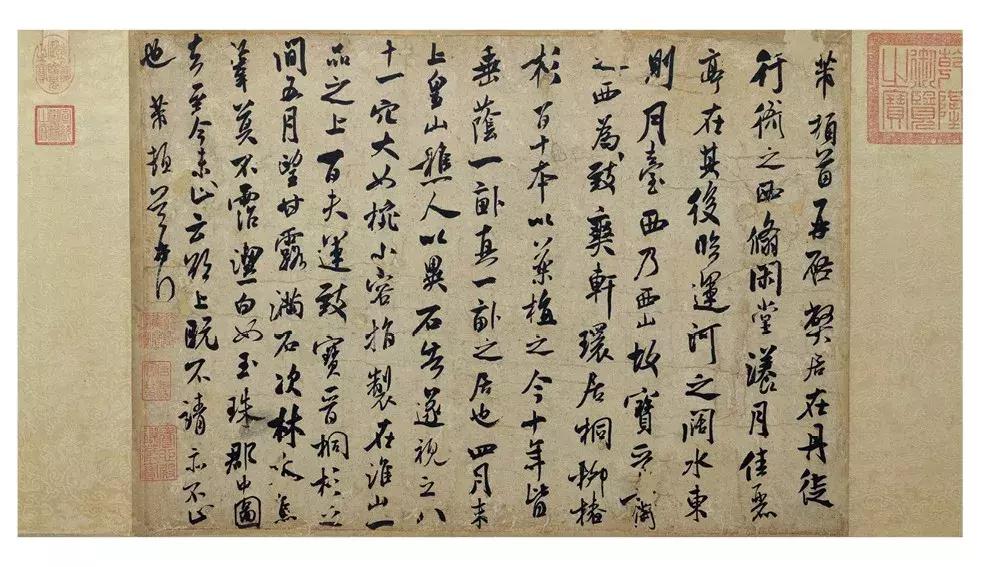 乾隆御覽之寶
芾頓首再啓弊居在丹徒
行衙之西翛閑堂漾月佳麗
亭在其後臨運河之闊水東
則月臺西乃西山故寶晉齋
之西為致爽軒環居桐柳椿
杉百十本以藥植之今十年皆
垂蔭一畝真一畝之居也四月末
上皇山樵人以異石告遂視之八
十一穴大如椀小容指製在淮山一
品之上百夫運致寶晉桐杉之
間五月望甘露滿石次林木焉
葦莫不霑潔白如玉珠郡中圖
去至今未止云欲上既不請亦不止
也 芾頓首